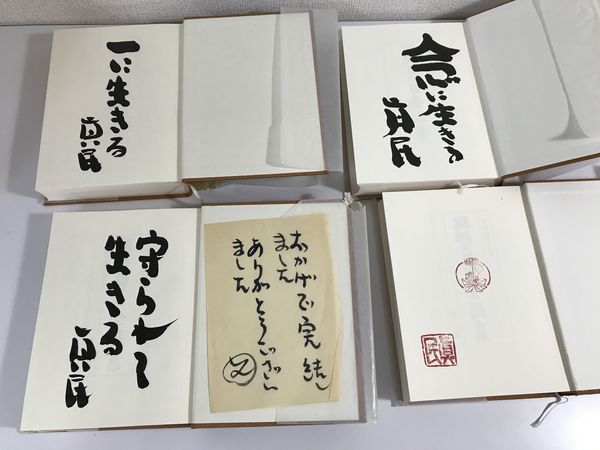 一に生きる
真民
念に生きる
真民
守られて
生きる
真民
おかげで完結し
ました
ありがとうござい
ました
真民